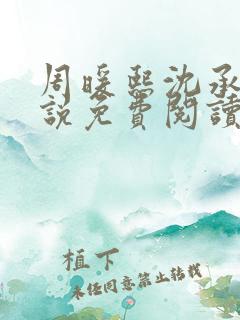 周暖熙沈承
說免費閱讀
植下
未经同意禁止转载